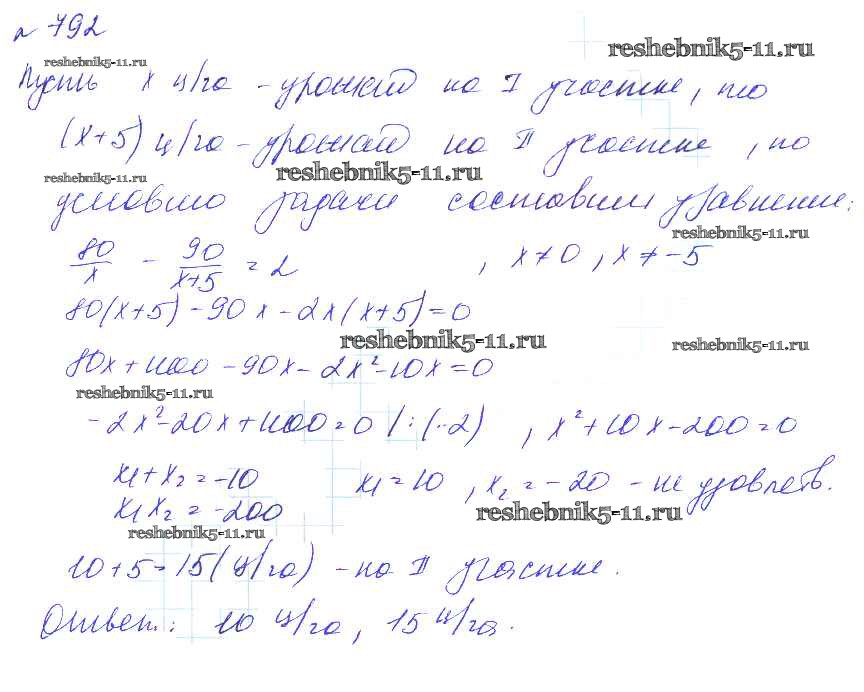 № 792
reshebnik5-11.ru
reshebnik5-11.ru
Пусть x ц/га - урожай на I участке, то
(x+5) ц/га - урожай на II участке, по
reshebnik5-11.ru
reshebnik5-11.ru
условию задачи составим уравнение:
reshebnik5-11.ru
80/x - 90/(x+5) = 2 , x ≠ 0, x ≠ -5
80(x+5) - 90x - 2x(x+5) = 0
reshebnik5-11.ru
reshebnik5-11.ru
80x + 400 - 90x - 2x² - 10x = 0
reshebnik5-11.ru
-2x² - 20x + 400 = 0 | : (-2) , x² + 10x - 200 = 0
x₁ + x₂ = -10 x₁ = 10 , x₂ = -20 - не удовлетв.
x₁x₂ = -200
reshebnik5-11.ru
reshebnik5-11.ru
10 + 5 = 15 (ц/га) - на II участке.
Ответ: 10 ц/га, 15 ц/га.